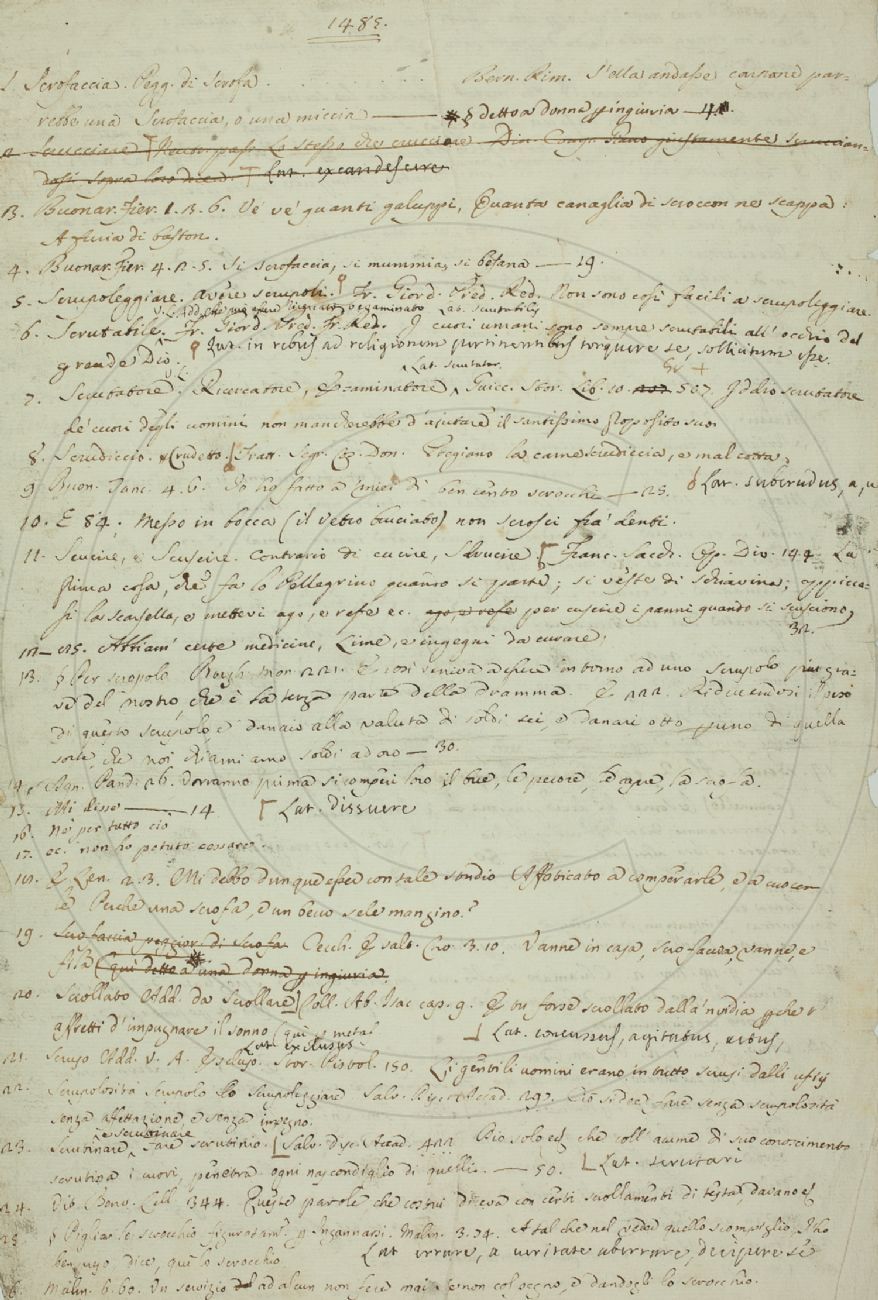 1485.
1. Scrofaccia. Pegg. di Scrofa. Bern. Rim. S'ella andasse carpone par-
rebbe una Scrofaccia, o una miccia — § detto a donna p ingiuria — 4
Scrucciare Lo stesso che crucciare Din. Comp. giustamente scruccian-
dosi sopra loro dicea. Lat. excandescere
3. Buonar. Fier. 1. 3. 6. Ve' ve' quanti galuppi, Quanta canaglia di scroccon ne scappa:
A furia di baston.
4. Buonar. Fier. 4. 2. 5. Si scrofaccia, si mummia, si befana — 19.
5. Scrupoleggiare. avere scrupoli. Fr. Giord. Pred. Red. Non sono così facili a scrupoleggiare
Lat. scrutabilis
6. Scrutabile. Fr. Giord. Pred. Red. I cuori umani sono sempre scrutabili all'occhio del
grande Dio. Lat. in rebus ad religionem pertinentibus torquere se, sollicitum esse.
Lat. scrutator.
7. Scrutatore. Ricercatore, Esaminatore, Guicc. Stor. Lib. 10. 507. Iddio scrutatore
de' cuori degli uomini non mancherebbe d'ajutare il santissimo proposito suo.
8. Scrudiccio. Crudetto. Tratt. Segr. Cos. Don. la carne scrudiccia, e mal cotta.
9. Buon. Tanc. 4. 6. Io ho fatto a' miei dì ben cento scrocchi — 25. Lat. subcrudus, a, u
10. E 84. Messo in bocca (il vetro bruciato) non scrosci fra' denti.
11. Scucire, e Scuscire. Contrario di cucire, Sdrucire Franc. Sacch. Op. Div. 144. La
prima cosa, che fa lo Pellegrino quando si parte; si veste di schiavina; appicca-
si la scarsella, e mettevi ago, e refe ec. ago, e refe per cuscire i panni quando si scusciono,
32.
12. — 25. Abbiam' certe medicine, Lime, e ingegni da curare.
13. § Per scropolo Borgh. Mon. 221. E così veniva a essere intorno ad uno scrupolo più gra-
ve del nostro che è la terza parte della dramma. E 222. Riducendosi il peso
di questo scrupolo, e danaio alla valuta di soldi sei, e danari otto di quella
sorte, che noi chiamiamo soldi ad oro — 30.
14. Agn. Pand. 26. Vorranno prima si comperi loro il bue, le pecore, le capre, la scrofa.
15. Mi disse — 14 Lat. dissuere
16. Nè per tutto ciò
17. ec. non ho potuto cessare.
18. E Len. 2. 3. Mi debbo dunque esser con tale studio Affaticato a comperarle, e a cuocer-
le Perchè una scrofa, e un becco se le mangino?
19. Scrofaccia peggior. di Scrofa. Cecch. Esalt. Cr. 3. 10. Vanne in casa, scrofaccia, vanne, e
fila (qui detto a una donna p ingiuria.
20. Scrollato Add. da Scrollare Coll. Ab. Isac cap. 9. E tu forse scrollato dalla 'nvidia
affretti d'impugnare il sonno (qui p metaf. Lat. concussus, agitatus,
Lat. exclusus
21. Scruso Add. V. A. Escluso. Stor. Pistol. 150. gentili uomini erano in tutto scrusi dalli ufizj
22. Scrupolosità Scrupolo lo Scrupoleggiare Salv. Accad. Ciò si dee fare senza scrupolosità
senza affettazione, e senza impegno.
e scrutinare
23. Scrutinare Fare scrutinio. Salv. Disc. Accad. 422 Dio solo è, che coll'acume di suo conoscimento
scrutina i cuori, penetra ogni nascondiglio di quelli. — 50. Lat. scrutari
24. Vit. Benv. Cell. 344. Queste parole che costui diceva con certi scrollamenti di testa, davano
25. § Pigliare lo scrocchio figuratam. p Ingannarsi. Malm. 3. 74. A tal che nel veder quello scompiglio, I' ho
ben, dice, qui lo scrocchio Lat. errare, a veritate aberrare, decipere se
Malm. 6. 60. Un servizio ad alcun non fece mai Se non col pegno, e dandogli lo scrocchio.